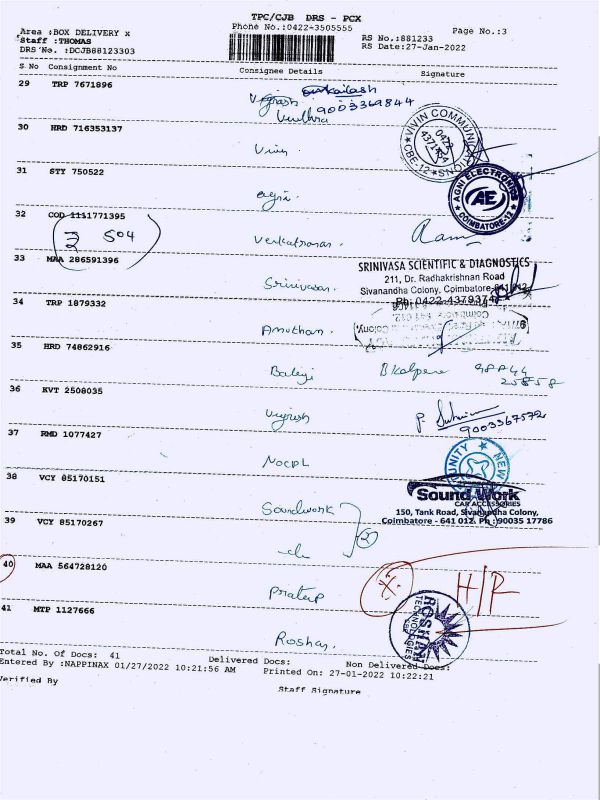 TPC/CJB DRS - PCX
Area :BOX DELIVERY x
Phone No.:0422-3505555
Page No.:3
Staff :THOMAS
RS No.:881233
DRS No. :DCJB88123303
RS Date:27-Jan-2022
S No Consignment No Consignee Details Signature
29 TRP 7671896
Vignesh 9003369844
30 HRD 716353137
VIVIN COMMUNICATIONS
CBE-12
0422
Vivin
31 STY 750522
AGNI ELECTRONICS
AE
COIMBATORE-12
agni
32 COD 1111771395
504
Venkatraman
33 MAA 286591396
SRINIVASA SCIENTIFIC & DIAGNOSTICS
211, Dr. Radhakrishnan Road
Sivanandha Colony, Coimbatore-641 012.
Srinivasan
34 TRP 1879332
Amuthan
35 HRD 74862916
Balaji Bkalpana
36 KVT 2508035
Vignesh
9003367572
37 RMD 1077427
NOCPL
38 VCY 85170151
Sound Work
CAR ACCESSORIES
150, Tank Road, Sivanandha Colony,
Coimbatore - 641 012. Ph : 90035 17786
Soundwork
39 VCY 85170267
2
40 MAA 564728120
H/R
Pratap
41 MTP 1127666
ROSHAN TECHNOLOGIES
Roshan
Total No. Of Docs: 41 Delivered Docs: Non Delivered Docs:
Entered By :NAPPINAX 01/27/2022 10:21:56 AM Printed On: 27-01-2022 10:22:21
Verified By
Staff Signature